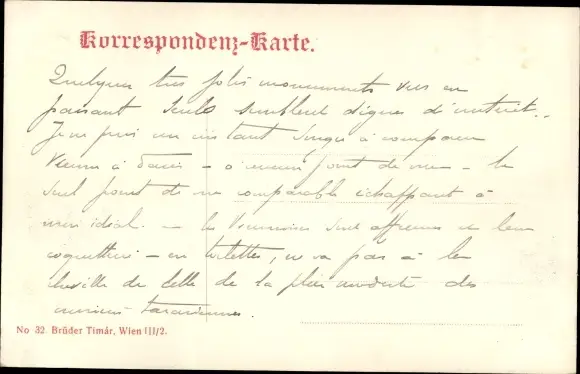 Korrespondenz-Karte.
Quelques très jolis monuments vus en
passant seuls semblent dignes d'intérêt..
Je ne puis un instant songer à comparer
Vienne à Paris – à aucun point de vue – le
seul point de vue comparable échappant à
mon idéal. – les Viennoises sont affreuses et leur
coquetterie – en toilettes, ne va pas à la
cheville de celle de la plus modeste des
No 32. Brüder Timár, Wien III/2.